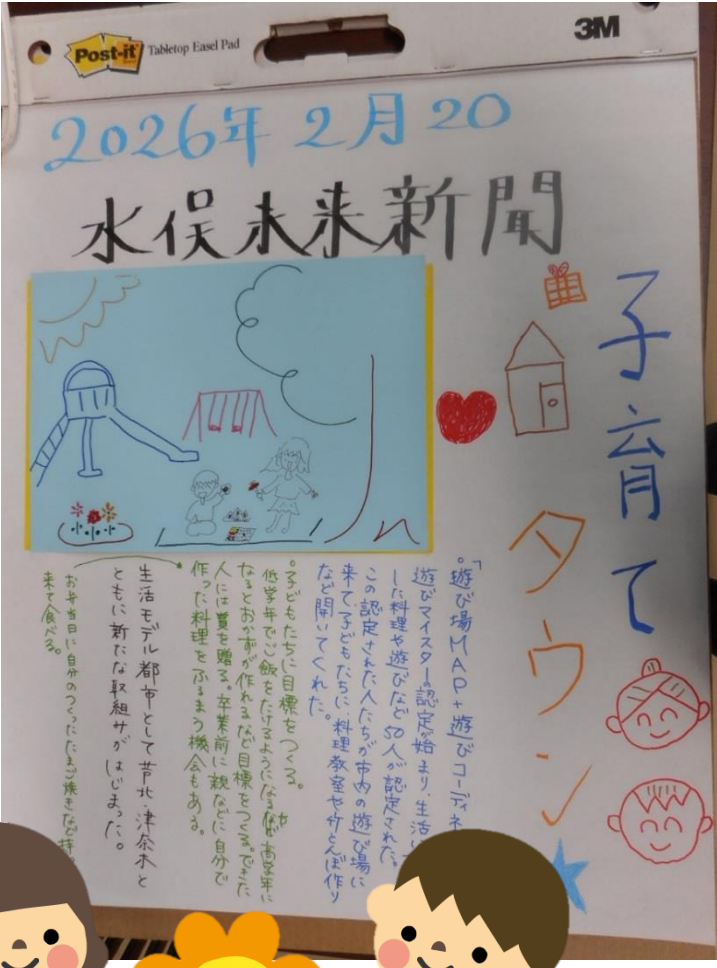 Post-it Tabletop Easel Pad
3M
2026年2月20
水俣未来新聞
子育て
タウン
「遊び場MAP+遊びコーディネ
遊びマイスターの認定が始まり、生活
した料理や遊びなど50人が認定された。
この認定された人たちが市内の遊び場に
来て、子どもたちに、料理教室や竹とんぼ作り
など開いてくれた。
・子どもたちに目標をつくる。
低学年でご飯をたけるようになるなど、高学年に
なるとおかずが作れるなど目標をつくる。できた
人には賞を贈る。卒業前に親などに自分で
作った料理をふるまう機会もある。
生活モデル都市として芦北・津奈木と
ともに新たな取組サがはじまった。
お弁当日に自分のつくったたまご焼きなど持
来て食べる。